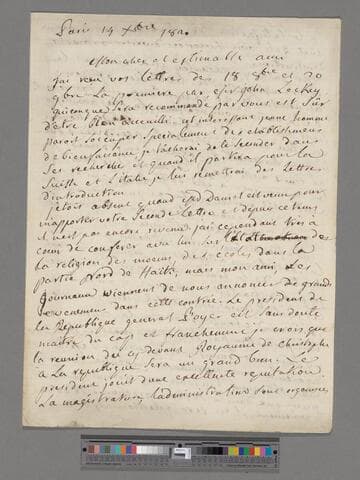 Paris 14 Xbre 1820
Mon cher et estimable ami
j'ai reçu vos lettres des 18 8bre et 20
9bre La premiere par esqr john
quiconque sera recommandé par vous est sûr
d'être bien accueilli. cet interessant jeune homme
paroit s'occuper specialement des etablissemens
de bienfaisance je tacherai de le seconder dans
ses recherches et quand il partira pour la
Suisse et l'italie je lui remettrai des Lettres
d'introduction
j'etois absent quand est venu pour
m'apporter votre seconde Lettre et depuis ce tems
il n'est pas encore revenu j'ai cependant très à
cœur de conferer avec lui sur des
la religion des moeurs des ecoles dans la
partie Nord de Haïti, mais mon ami, Les
journaux viennent de nous annoncer de grands
evenemens dans cette contrée. Le president de
la Republique general Boyer est sans doute
maitre du cap et franchement je crois que
la reunion du cy devant Royaume de christophe
à la republique sera un grand bien. Le
president jouit d'une excellente reputation
La magistrature l'administration sont organisées